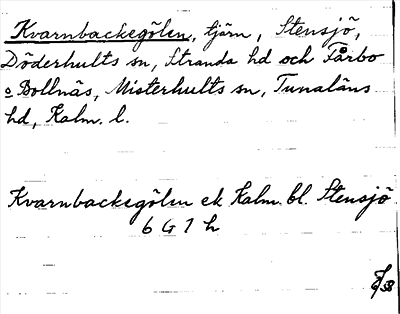 Kvarnbackegölen, tjärn, Stensjö,
Döderhults sn, Stranda hd och Fårbo
o Bollnäs, Misterhults sn, Tunaläns
hd, Kalm. l.
Kvarnbackegölen ek Kalm. bl. Stensjö
6 G 7 h